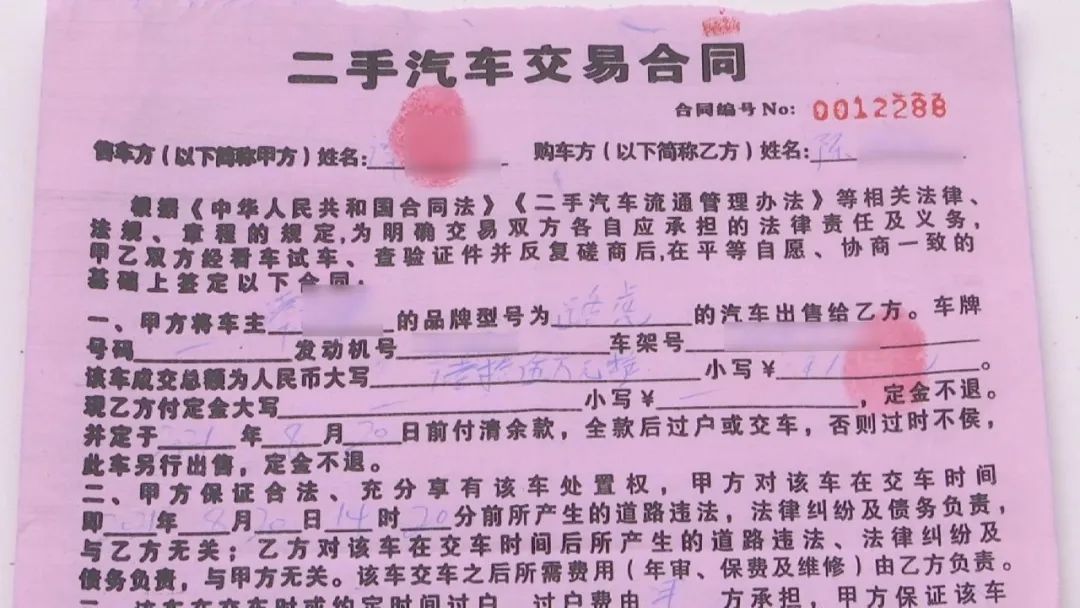 二手汽车交易合同
合同编号 No: 0012288
售车方(以下简称甲方)姓名: 购车方(以下简称乙方)姓名:陈
根据《中华人民共和国合同法》《二手汽车流通管理办法》等相关法律、
法规、章程的规定,为明确交易双方各自应承担的法律责任及义务,
甲乙双方经看车试车、查验证件并反复磋商后,在平等自愿、协商一致的
基础上签定以下合同:
一、甲方将车主 的品牌型号为路虎的汽车出售给乙方。车牌
号码 发动机号 车架号
该车成交总额为人民币大写 小写¥ 。
现乙方付定金大写 小写¥ ,定金不退。
并定于2021年8月20日前付清余款,全款后过户或交车,否则过时不侯,
此车另行出售,定金不退。
二、甲方保证合法、充分享有该车处置权,甲方对该车在交车时间
即2021年8月20日14时20分前所产生的道路违法,法律纠纷及债务负责,
与乙方无关;乙方对该车在交车时间后所产生的道路违法、法律纠纷及
债务负责,与甲方无关。该车交车之后所需费用(年审、保费及维修)由乙方负责。
该车在交车时或约定时间过户,过户费由 方承担,甲方保证该车